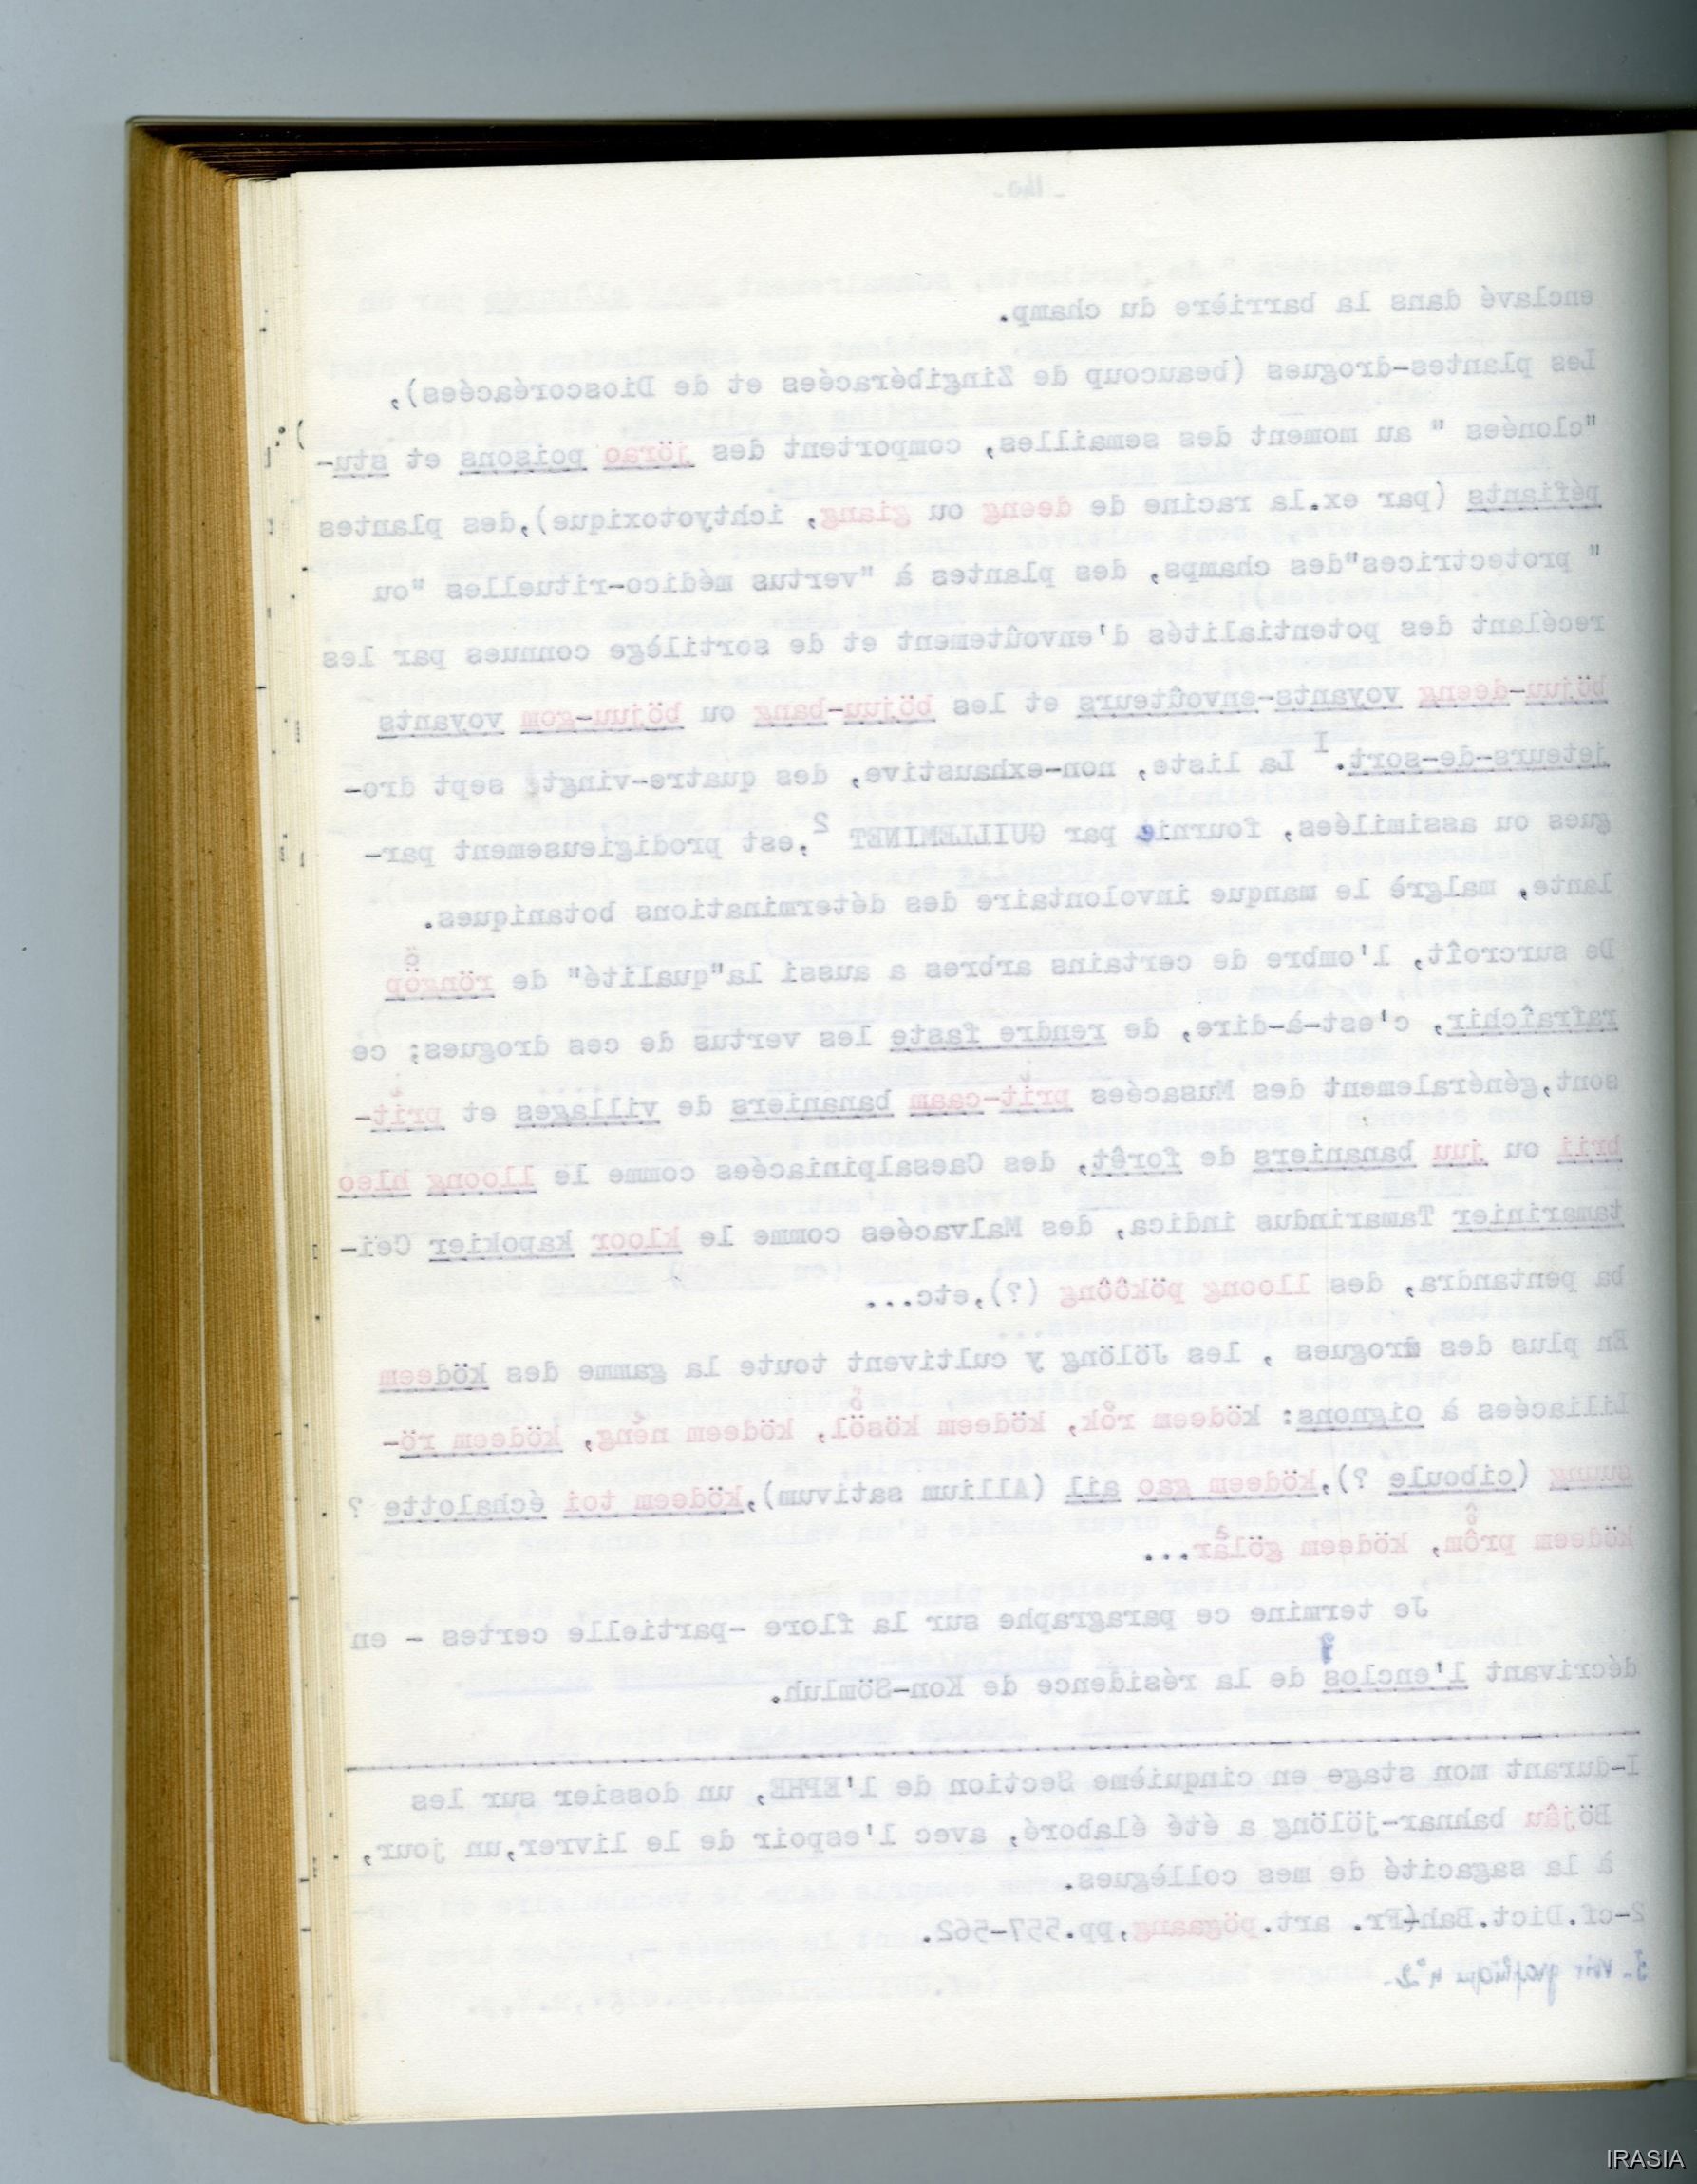 - 140.
enclavé dans la barrière du champ.
Les plantes-drogues (beaucoup de Zingibéracées et de Dioscoréacées),
"clonées " au moment des semailles, comportent des jörao poisons et stu-
péfiants (par ex.la racine de deeng ou giang, ichtyotoxique),des plantes
" protectrices"des champs, des plantes à "vertus médico-rituelles "ou
recélant des potentialités d'envoûtement et de sortilège connues par les
böjuu-deeng voyants-envoûteurs et les böjuu-bang ou böjuu-gom voyants
jeteurs-de-sort.I La liste, non-exhaustive, des quatre-vingt sept dro-
gues ou assimilées, fournie par GUILLEMINET 2,est prodigieusement par-
lante, malgrè le manque involontaire des déterminations botaniques.
De surcroît, l'ombre de certains arbres a aussi la"qualité" de röngöp
rafraîchir, c'est-à-dire, de rendre faste les vertus de ces drogues; ce
sont,généralement des Musacées prit-caam bananiers de villages et prit-
brii ou juu bananiers de forêt, des Caesalpiniacées comme le lloong hleo
tamarinier Tamarindus indica, des Malvacées comme le kloor kapokier Cei-
ba pentandra, des lloong pökôông (?),etc...
En plus des drogues , les Jölöng y cultivent toute la gamme des ködeem
Liliacées à oignons: ködeem rŏk, ködeem kösöl, ködeem néng, ködeem rö-
guung (ciboule ?),ködeem gao ail (Allium sativum),ködeem toi échalotte ?
ködeem prôm, ködeem gölar...
Je termine ce paragraphe sur la flore -partielle certes - en
décrivant l'enclos 3 de la résidence de Kon-Sömluh.
I-durant mon stage en cinquième Section de l'EPHE, un dossier sur les
Böjâu bahnar-jölöng a été élaboré, avec l'espoir de le livrer,un jour,
à la sagacité de mes collègues.
2-cf.Dict.Bah/Fr. art.pögaang,pp.557-562.
3- voir graphique n°2.
IRASIA